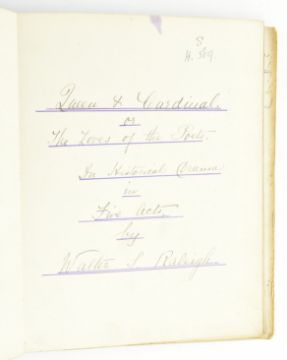 8
H. 389.
Queen & Cardinal.
or
The Loves of the Poets.
An Historical Drama
in
Five Acts.
by
Walter S. Raleigh.